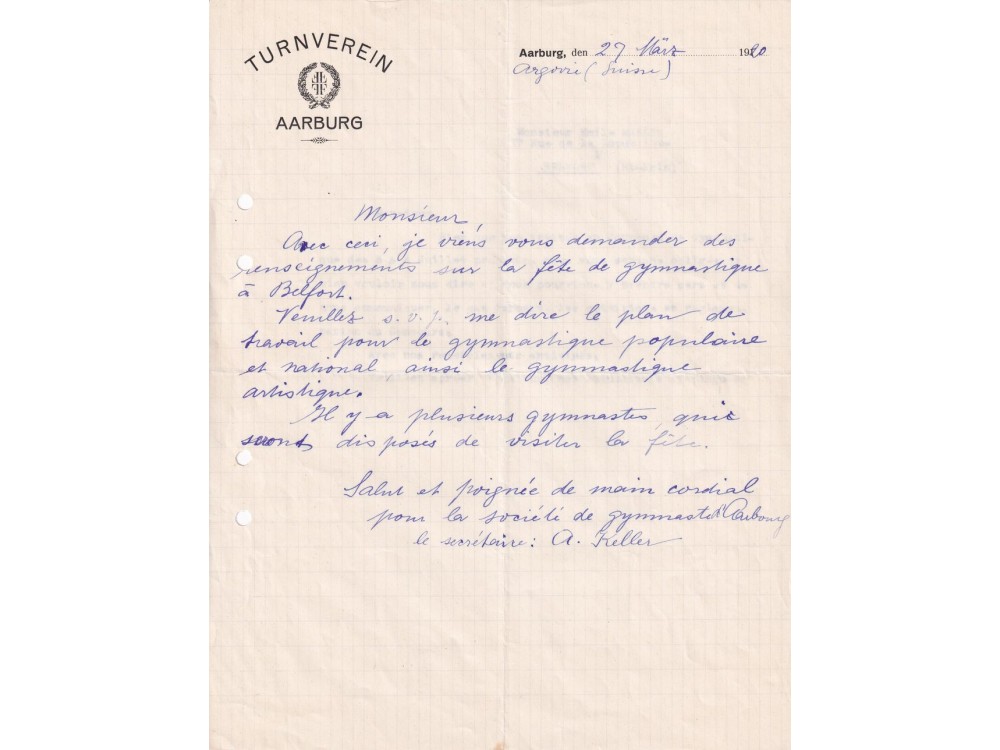 TURNVEREIN
AARBURG
Aarburg, den 27 März 19
Argovie (Suisse)
Monsieur,
Avec ceci, je viens vous demander des
renseignements sur la fête de gymnastique
à Belfort.
Veuillez s.v.p. me dire le plan de
travail pour le gymnastique populaire
et national ainsi le gymnastique
artistique.
Il y a plusieurs gymnastes, qui
disposés de visiter la fête.
Salut et poignée de main cordial
pour la société de gymnaste d'Aarbourg
le secrétaire: A. Keller